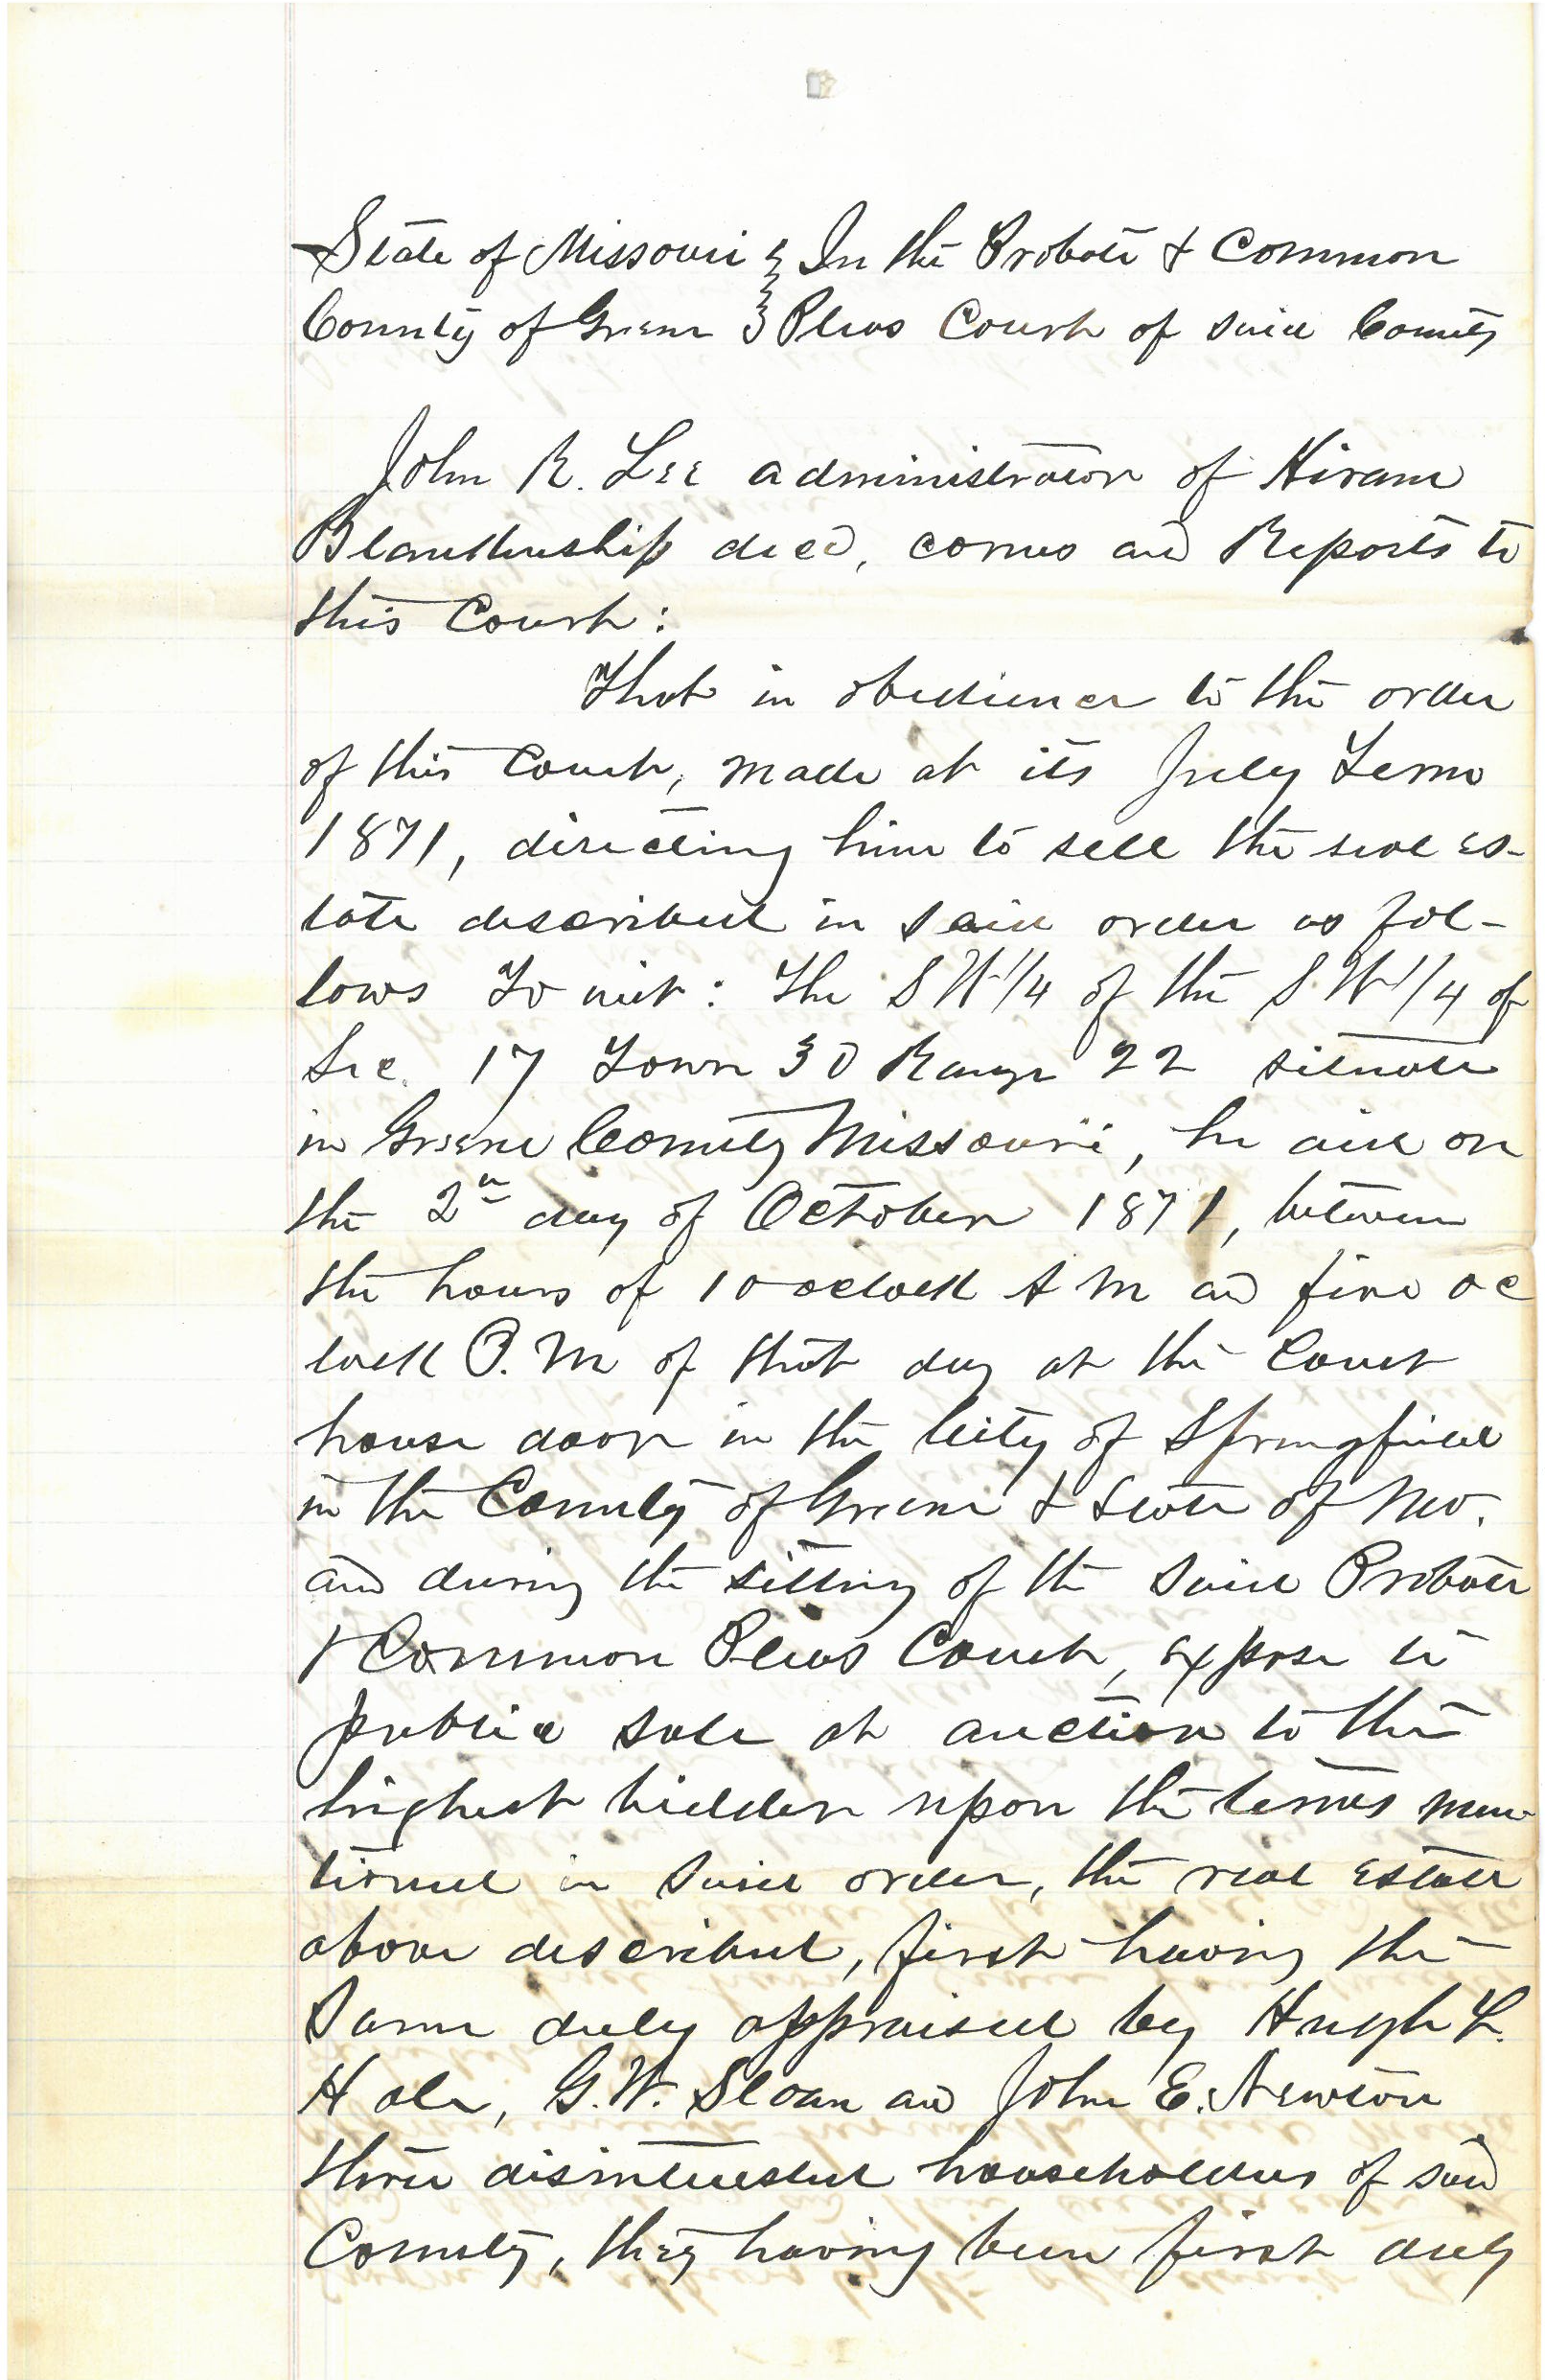 State of Missouri } In the Probate & Common
County of Greene } Pleas Court of said County
John R. Lee administrator of Hiram
Blankenship decd, comes and Reports to
this Court:
That in obedience to the order
of this Court, made at its July Term
1871, directing him to sell the real es-
tate described in said order as fol-
lows To wit: The S W 1/4 of the S. W 1/4 of
Sec. 17 Town 30 Range 22 situate
in Greene County Missouri, he did on
the 2nd day of October 1871, between
the hours of 10 oclock A M and five oc
lock P. M of that day at the Court
house door in the City of Springfield
in the County of Greene & State of Mo.
and during the sitting of the said Probate
& Common Pleas Court, expose to
public sale at auction to the
highest bidder upon the terms men-
tioned in said order, the real estate
above described, first having the
same duly appraised by Hugh L.
Hale, G. W. Sloan and John E. Newton
three disinterested householders of said
County, they having been first duly